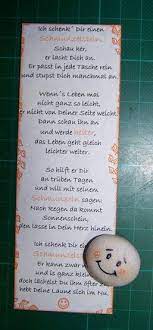 Ich schenk' Dir einen
Schmunzelstein.
Schau her,
er lacht Dich an.
Er passt in jede Tasche rein
und stupst Dich manchmal an.
Wenn's Leben mal
nicht ganz so leicht,
er nicht von Deiner Seite weicht.
Dann schau ihn an
und werde heiter,
das Leben geht gleich
leichter weiter.
So hilft er Dir
an trüben Tagen
und will mit seinen
Schmunzeln sagen:
Nach Regen da kommt
Sonnenschein,
den lasse in Dein Herz hinein.
Ich schenk Dir ein
Schmunzelstein
Er kann zwar
und is ganz kle
doch lächelst Du ihn öfter
hebt Deine Laune sich im Nu.